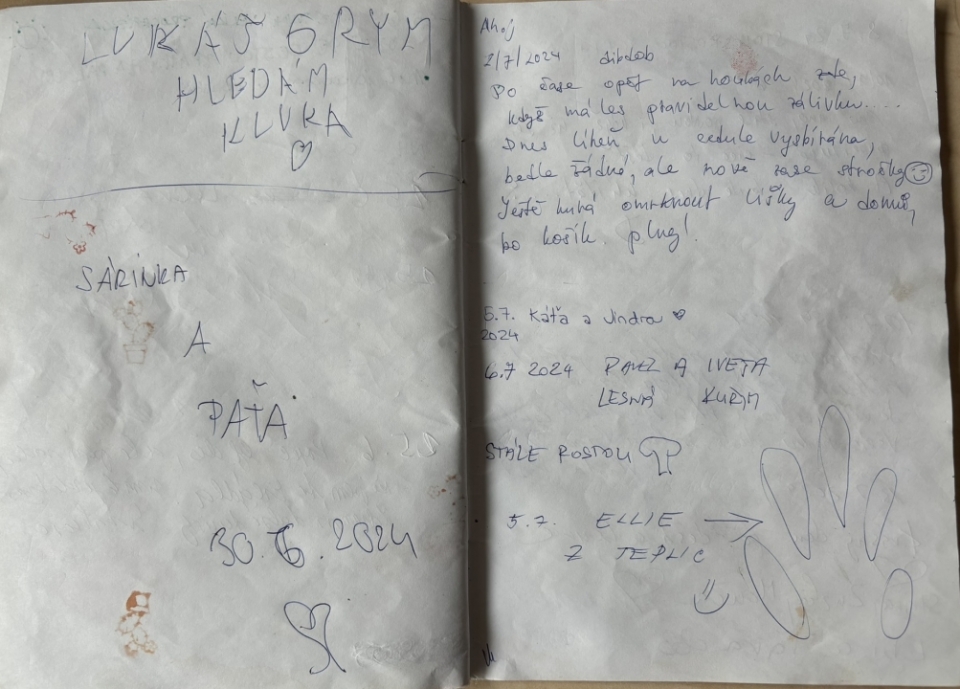 LUKÁŠ GRYM
HLEDÁM
KLUKA
SÁRINKA
A
PAŤA
30.6.2024
Ahoj
2/7/2024
Po čase opět na houbách zde,
když má les pravidelnou zálivku....
Dnes líheň u cedule vysbírána,
bedle žádné, ale nově zase stročky
Ještě omrknout lišky a domů,
po košík plný!
5.7. Káťa a Jindra
2024
6.7 2024 PAVEL A IVETA
LESNÁ KUŘIM
STÁLE ROSTOU
5.7. ELLIE
Z TEPLIC